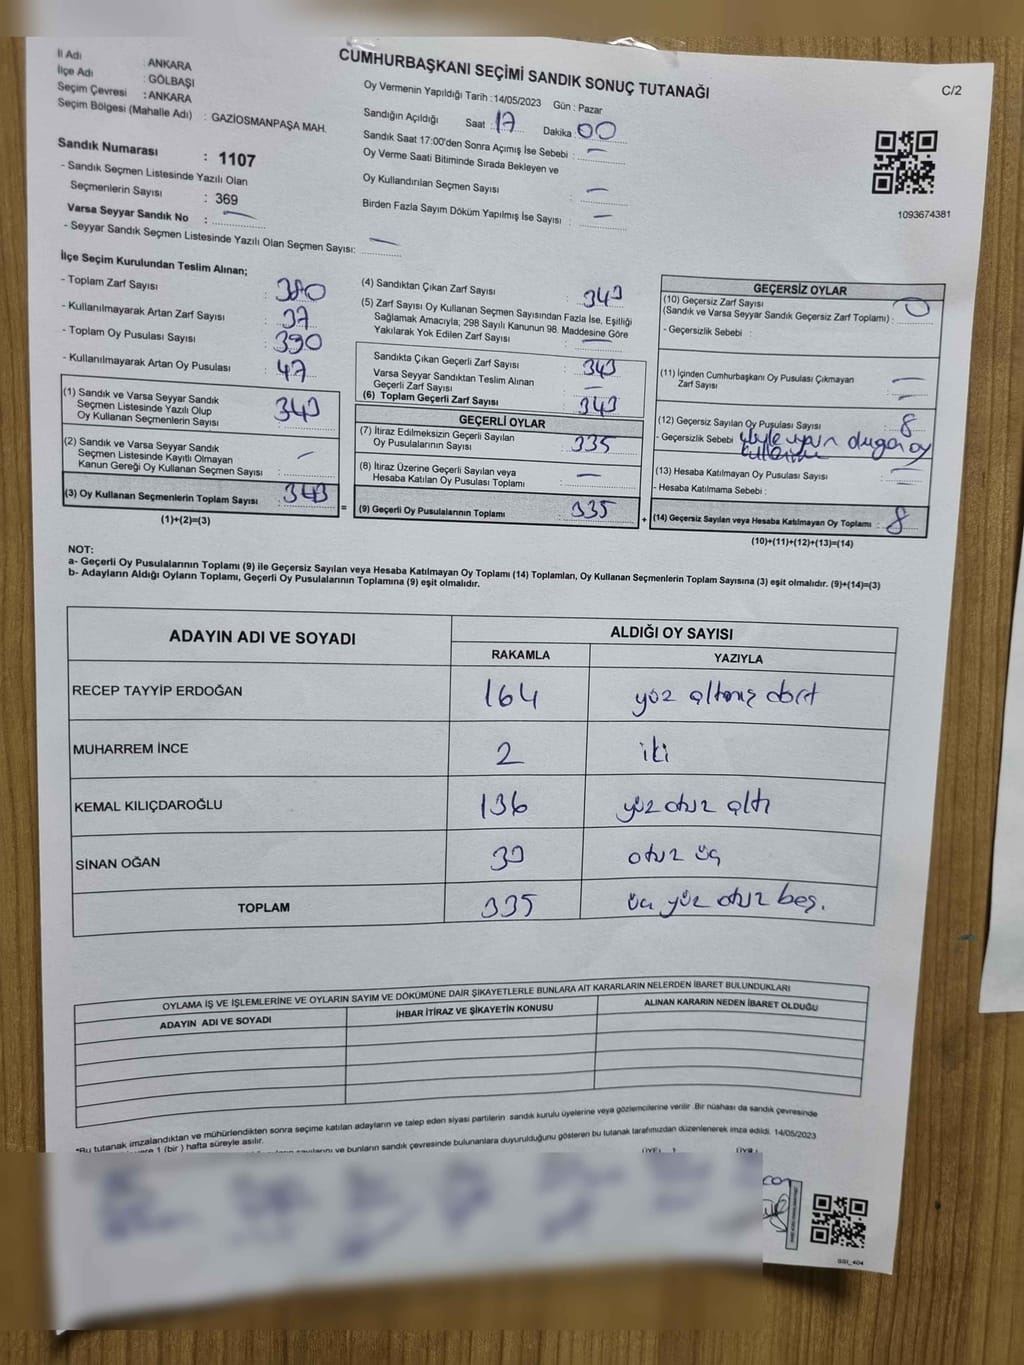 CUMHURBAŞKANI SEÇİMİ SANDIK SONUÇ TUTANAĞI
C/2
İl Adı : ANKARA
İlçe Adı : GÖLBAŞI
Seçim Çevresi : ANKARA
Seçim Bölgesi (Mahalle Adı) : GAZİOSMANPAŞA MAH.
Sandık Numarası : 1107
- Sandık Seçmen Listesinde Yazılı Olan
Seçmenlerin Sayısı : 369
Varsa Seyyar Sandık No : —
- Seyyar Sandık Seçmen Listesinde Yazılı Olan Seçmen Sayısı: —
Oy Vermenin Yapıldığı Tarih : 14/05/2023 Gün : Pazar
Sandığın Açıldığı Saat : 17 Dakika : 00
Sandık Saat 17:00'den Sonra Açımış İse Sebebi : —
Oy Verme Saati Bitiminde Sırada Bekleyen ve
Oy Kullandırılan Seçmen Sayısı : —
Birden Fazla Sayım Döküm Yapılmış İse Sayısı : —
1093674381
İlçe Seçim Kurulundan Teslim Alınan;
- Toplam Zarf Sayısı : 380
- Kullanılmayarak Artan Zarf Sayısı : 37
- Toplam Oy Pusulası Sayısı : 390
- Kullanılmayarak Artan Oy Pusulası : 47
(1) Sandık ve Varsa Seyyar Sandık
Seçmen Listesinde Yazılı Olup
Oy Kullanan Seçmenlerin Sayısı : 343
(2) Sandık ve Varsa Seyyar Sandık
Seçmen Listesinde Kayıtlı Olmayan
Kanun Gereği Oy Kullanan Seçmen Sayısı : —
(3) Oy Kullanan Seçmenlerin Toplam Sayısı : 343
(1)+(2)=(3)
(4) Sandıktan Çıkan Zarf Sayısı : 343
(5) Zarf Sayısı Oy Kullanan Seçmen Sayısından Fazla İse, Eşitliği
Sağlamak Amacıyla; 298 Sayılı Kanunun 98. Maddesine Göre
Yakılarak Yok Edilen Zarf Sayısı : —
Sandıkta Çıkan Geçerli Zarf Sayısı : 343
Varsa Seyyar Sandıktan Teslim Alınan
Geçerli Zarf Sayısı : —
(6) Toplam Geçerli Zarf Sayısı : 343
GEÇERLİ OYLAR
(7) İtiraz Edilmeksizin Geçerli Sayılan
Oy Pusulalarının Sayısı : 335
(8) İtiraz Üzerine Geçerli Sayılan veya
Hesaba Katılan Oy Pusulası Toplamı : —
= (9) Geçerli Oy Pusulalarının Toplamı : 335
GEÇERSİZ OYLAR
(10) Geçersiz Zarf Sayısı
(Sandık ve Varsa Seyyar Sandık Geçersiz Zarf Toplamı) : 0
- Geçersizlik Sebebi :
(11) İçinden Cumhurbaşkanı Oy Pusulası Çıkmayan
Zarf Sayısı : —
(12) Geçersiz Sayılan Oy Pusulası Sayısı : 8
- Geçersizlik Sebebi oy
(13) Hesaba Katılmayan Oy Pusulası Sayısı : —
- Hesaba Katılmama Sebebi :
+ (14) Geçersiz Sayılan veya Hesaba Katılmayan Oy Toplamı : 8
(10)+(11)+(12)+(13)=(14)
NOT:
a- Geçerli Oy Pusulalarının Toplamı (9) ile Geçersiz Sayılan veya Hesaba Katılmayan Oy Toplamı (14) Toplamları, Oy Kullanan Seçmenlerin Toplam Sayısına (3) eşit olmalıdır. (9)+(14)=(3)
b- Adayların Aldığı Oyların Toplamı, Geçerli Oy Pusulalarının Toplamına (9) eşit olmalıdır.
ADAYIN ADI VE SOYADI ALDIĞI OY SAYISI
RAKAMLA YAZIYLA
RECEP TAYYİP ERDOĞAN 164 yüz altmış dört
MUHARREM İNCE 2 iki
KEMAL KILIÇDAROĞLU 136 yüz otuz altı
SİNAN OĞAN 33 otuz üç
TOPLAM 335 üç yüz otuz beş.
OYLAMA İŞ VE İŞLEMLERİNE VE OYLARIN SAYIM VE DÖKÜMÜNE DAİR ŞİKAYETLERLE BUNLARA AİT KARARLARIN NELERDEN İBARET BULUNDUKLARI
ADAYIN ADI VE SOYADI İHBAR İTİRAZ VE ŞİKAYETİN KONUSU ALINAN KARARIN NEDEN İBARET OLDUĞU
*Bu tutanak imzalandıktan ve mühürlendikten sonra seçime katılan adayların ve talep eden siyasi partilerin sandık kurulu üyelerine veya gözlemcilerine verilir .Bir nüshası da sandık çevresinde
1 (bir ) hafta süreyle asılır.
ve bunların sandık çevresinde bulunanlara duyurulduğunu gösteren bu tutanak tarafımızdan düzenlenerek imza edildi. 14/05/2023